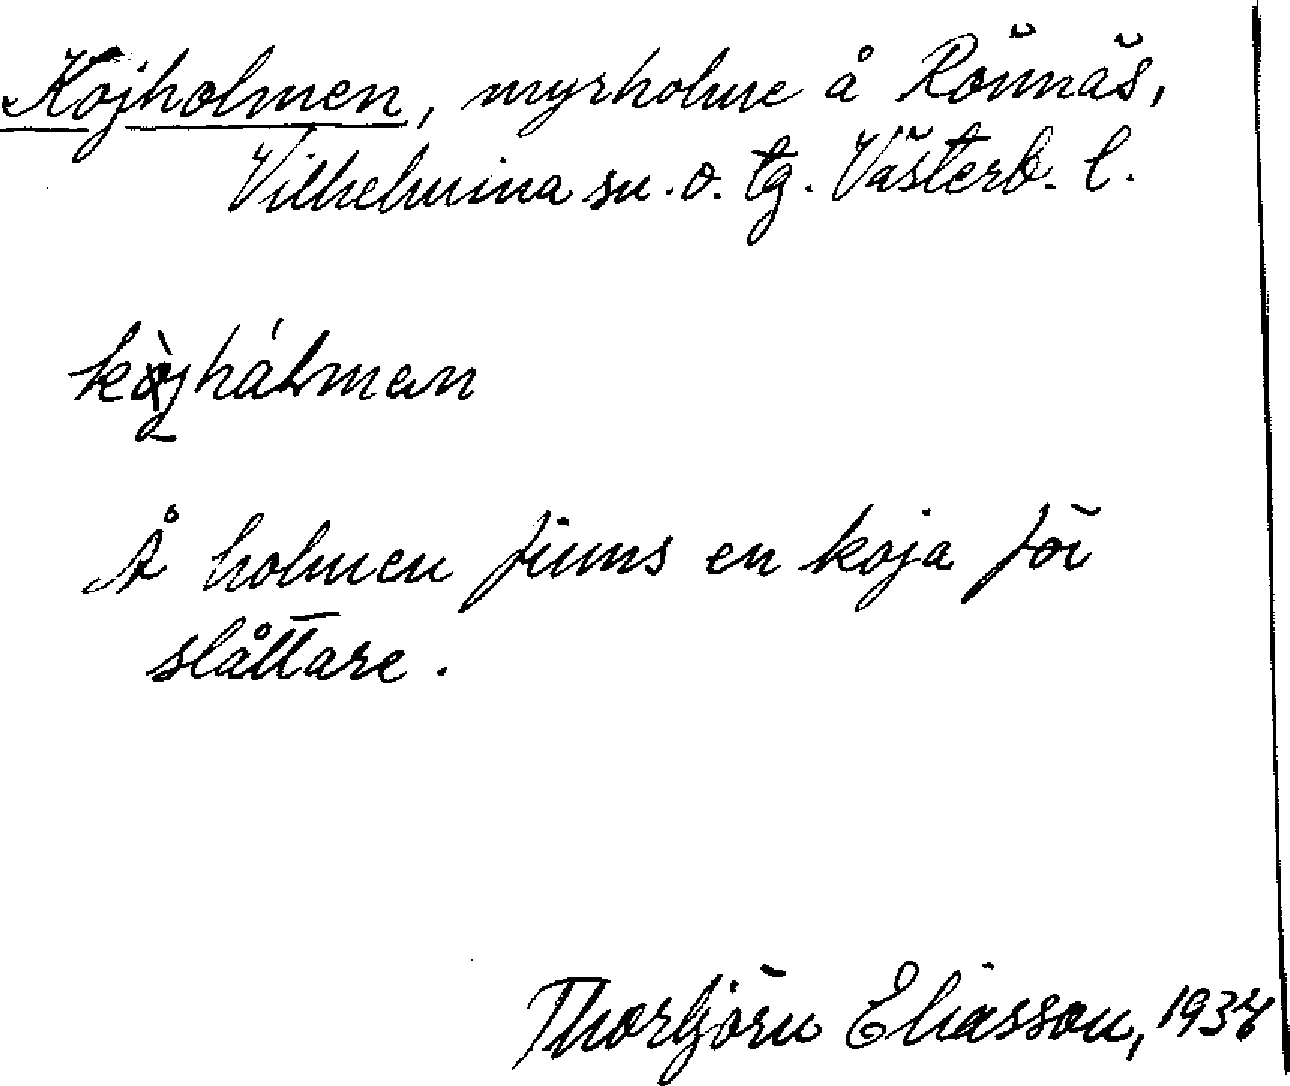 Kojholmen, myrholme å Rönnäs,
Vilhelmina sn. o. tg. Västerb. l.
kòjhálmen
Å holmen finns en koja för
slåttare.
Thorbjörn Eliasson,